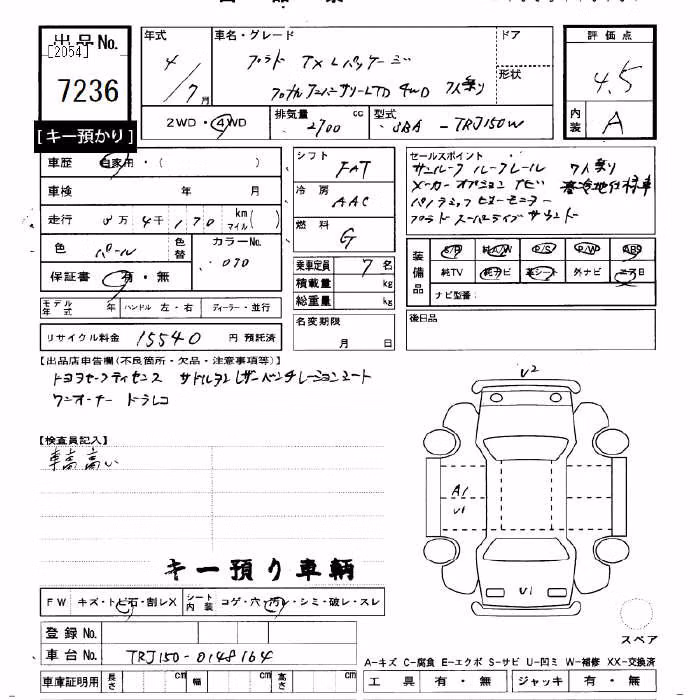 出品No.
[2054]
7236
[キー預かり]
年式
4/7月
車名・グレード
プラド TX Lパッケージ
70thアニバーサリーLTD 4WD 7人乗り
ドア
形状
評価点
4.5
内装
A
2WD・4WD
排気量
2700 cc
型式
CBA-TRJ150W
車歴 自家用・( )
車検 年 月
走行 万 4千 170 km マイル( )
色 パール
色替
カラーNo. 070
保証書 有・無
シフト FAT
冷房 AAC
燃料 G
乗車定員 7名
積載量 kg
総重量 kg
名変期限
月 日
セールスポイント
サンルーフ ルーフレール 7人乗り
メーカーオプションナビ 寒冷地仕様車
パノラミックビューモニター
プラド スーパーライブサウンド
装備品
S/R 純A/W P/S P/W ABS
純TV 純ナビ 革シート 外ナビ エアB
ナビ型番:
モデル年式 年 ハンドル 左・右 ディーラー・並行
リサイクル料金 15540 円 預託済
後日品
【出品店申告欄(不良箇所・欠品・注意事項等)】
トヨタセーフティセンス サドルタンレザーベンチレーションシート
ワンオーナー ドラレコ
【検査員記入】
車高高い
キー預り車輌
V2
A1
V1
V1
スペア
FW キズ・トビ石・割レX シート内装 コゲ・穴・汚レ・シミ・破レ・スレ
登録No.
車台No. TRJ150-0148164
車庫証明用 長さ cm 幅 cm 高さ cm
A-キズ C-腐食 E-エクボ S-サビ U-凹ミ W-補修 XX-交換済
工具 有・無 ジャッキ 有・無